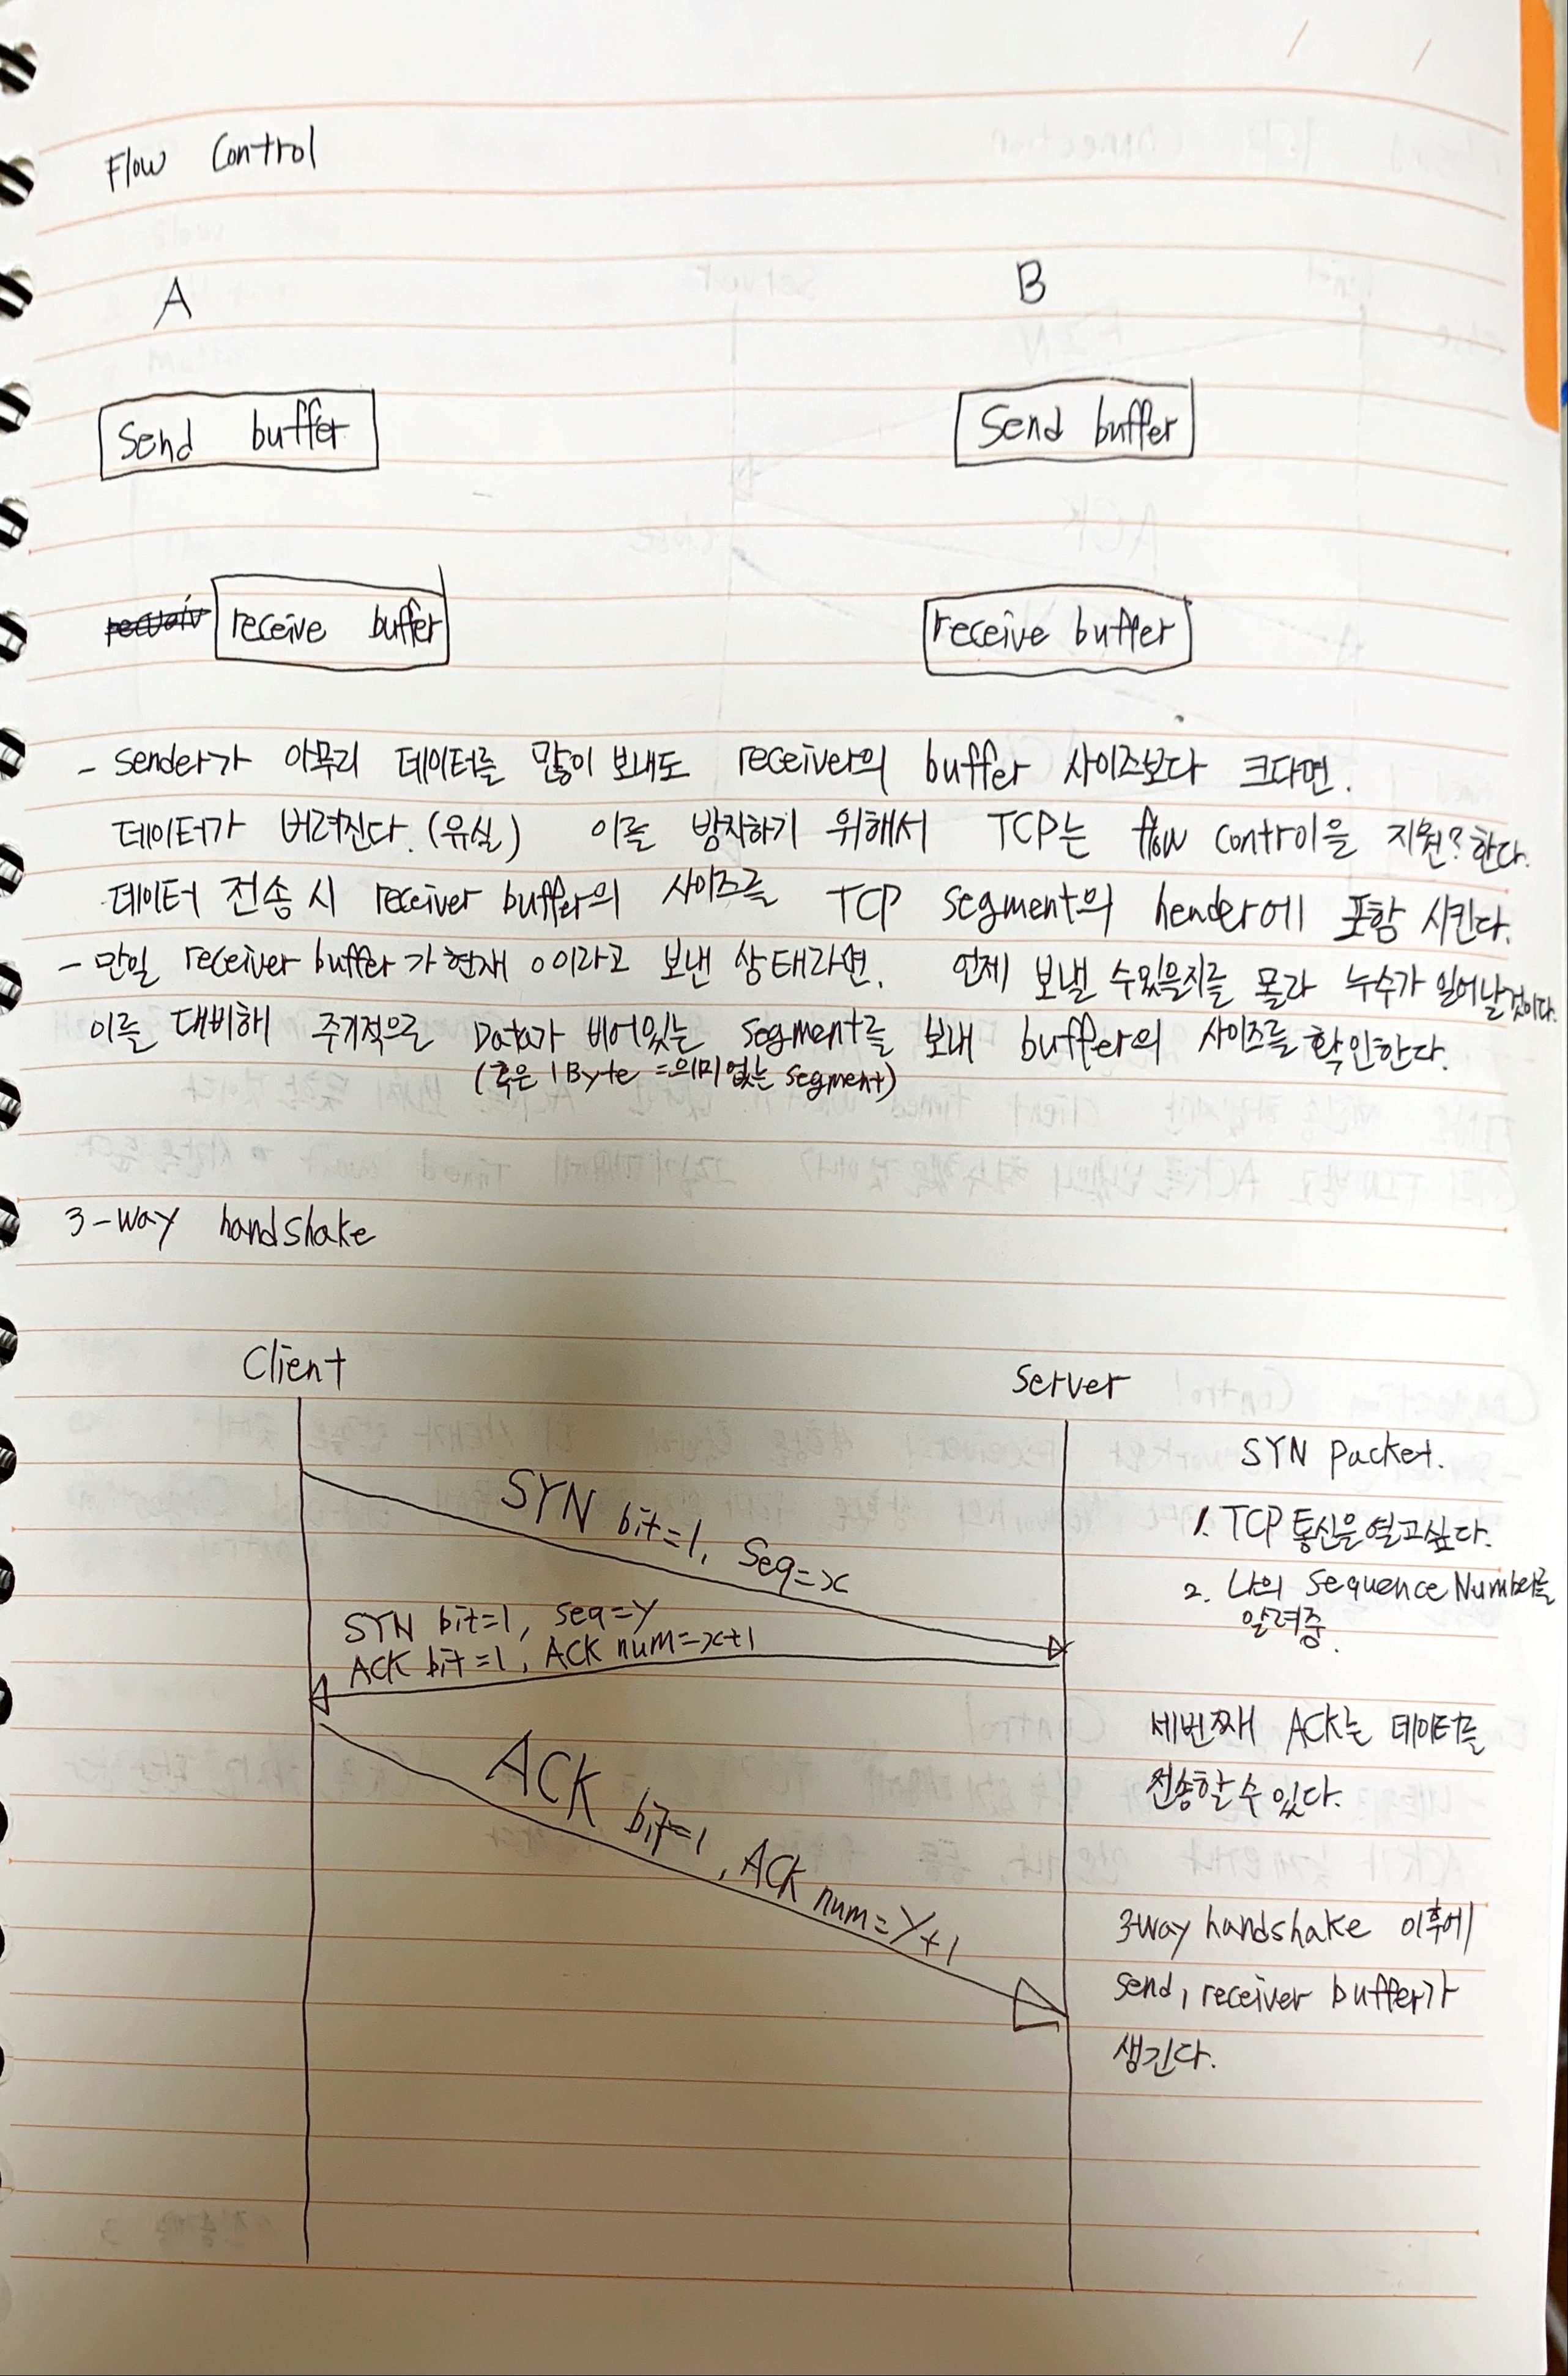 Flow Control
A
B
Send buffer
Send buffer
receive buffer
receive buffer
- Sender가 아무리 데이터를 많이 보내도 receiver의 buffer 사이즈보다 크다면.
데이터가 버려진다.(유실) 이를 방지하기 위해서 TCP는 flow control을 지원?한다.
데이터 전송 시 receiver buffer의 사이즈를 TCP segment의 header에 포함 시킨다.
- 만일 receiver buffer가 현재 0이라고 보낸 상태라면. 언제 보낼 수있을지를 몰라 누수가 일어날것이다.
이를 대비해 주기적으로 Data가 비어있는 segment를 보내 buffer의 사이즈를 확인한다.
(혹은 1Byte =의미없는 segment)
3-way handshake
Client
Server
SYN bit=1, Seq=x
SYN bit=1, seq=y
ACK bit=1, ACK num=x+1
ACK bit=1, ACK num=y+1
SYN packet.
1. TCP 통신을 열고싶다.
2. 나의 sequence Number를
알려줌.
세번째 ACK는 데이터를
전송할 수 있다.
3way handshake 이후에
send, receiver buffer가
생긴다.